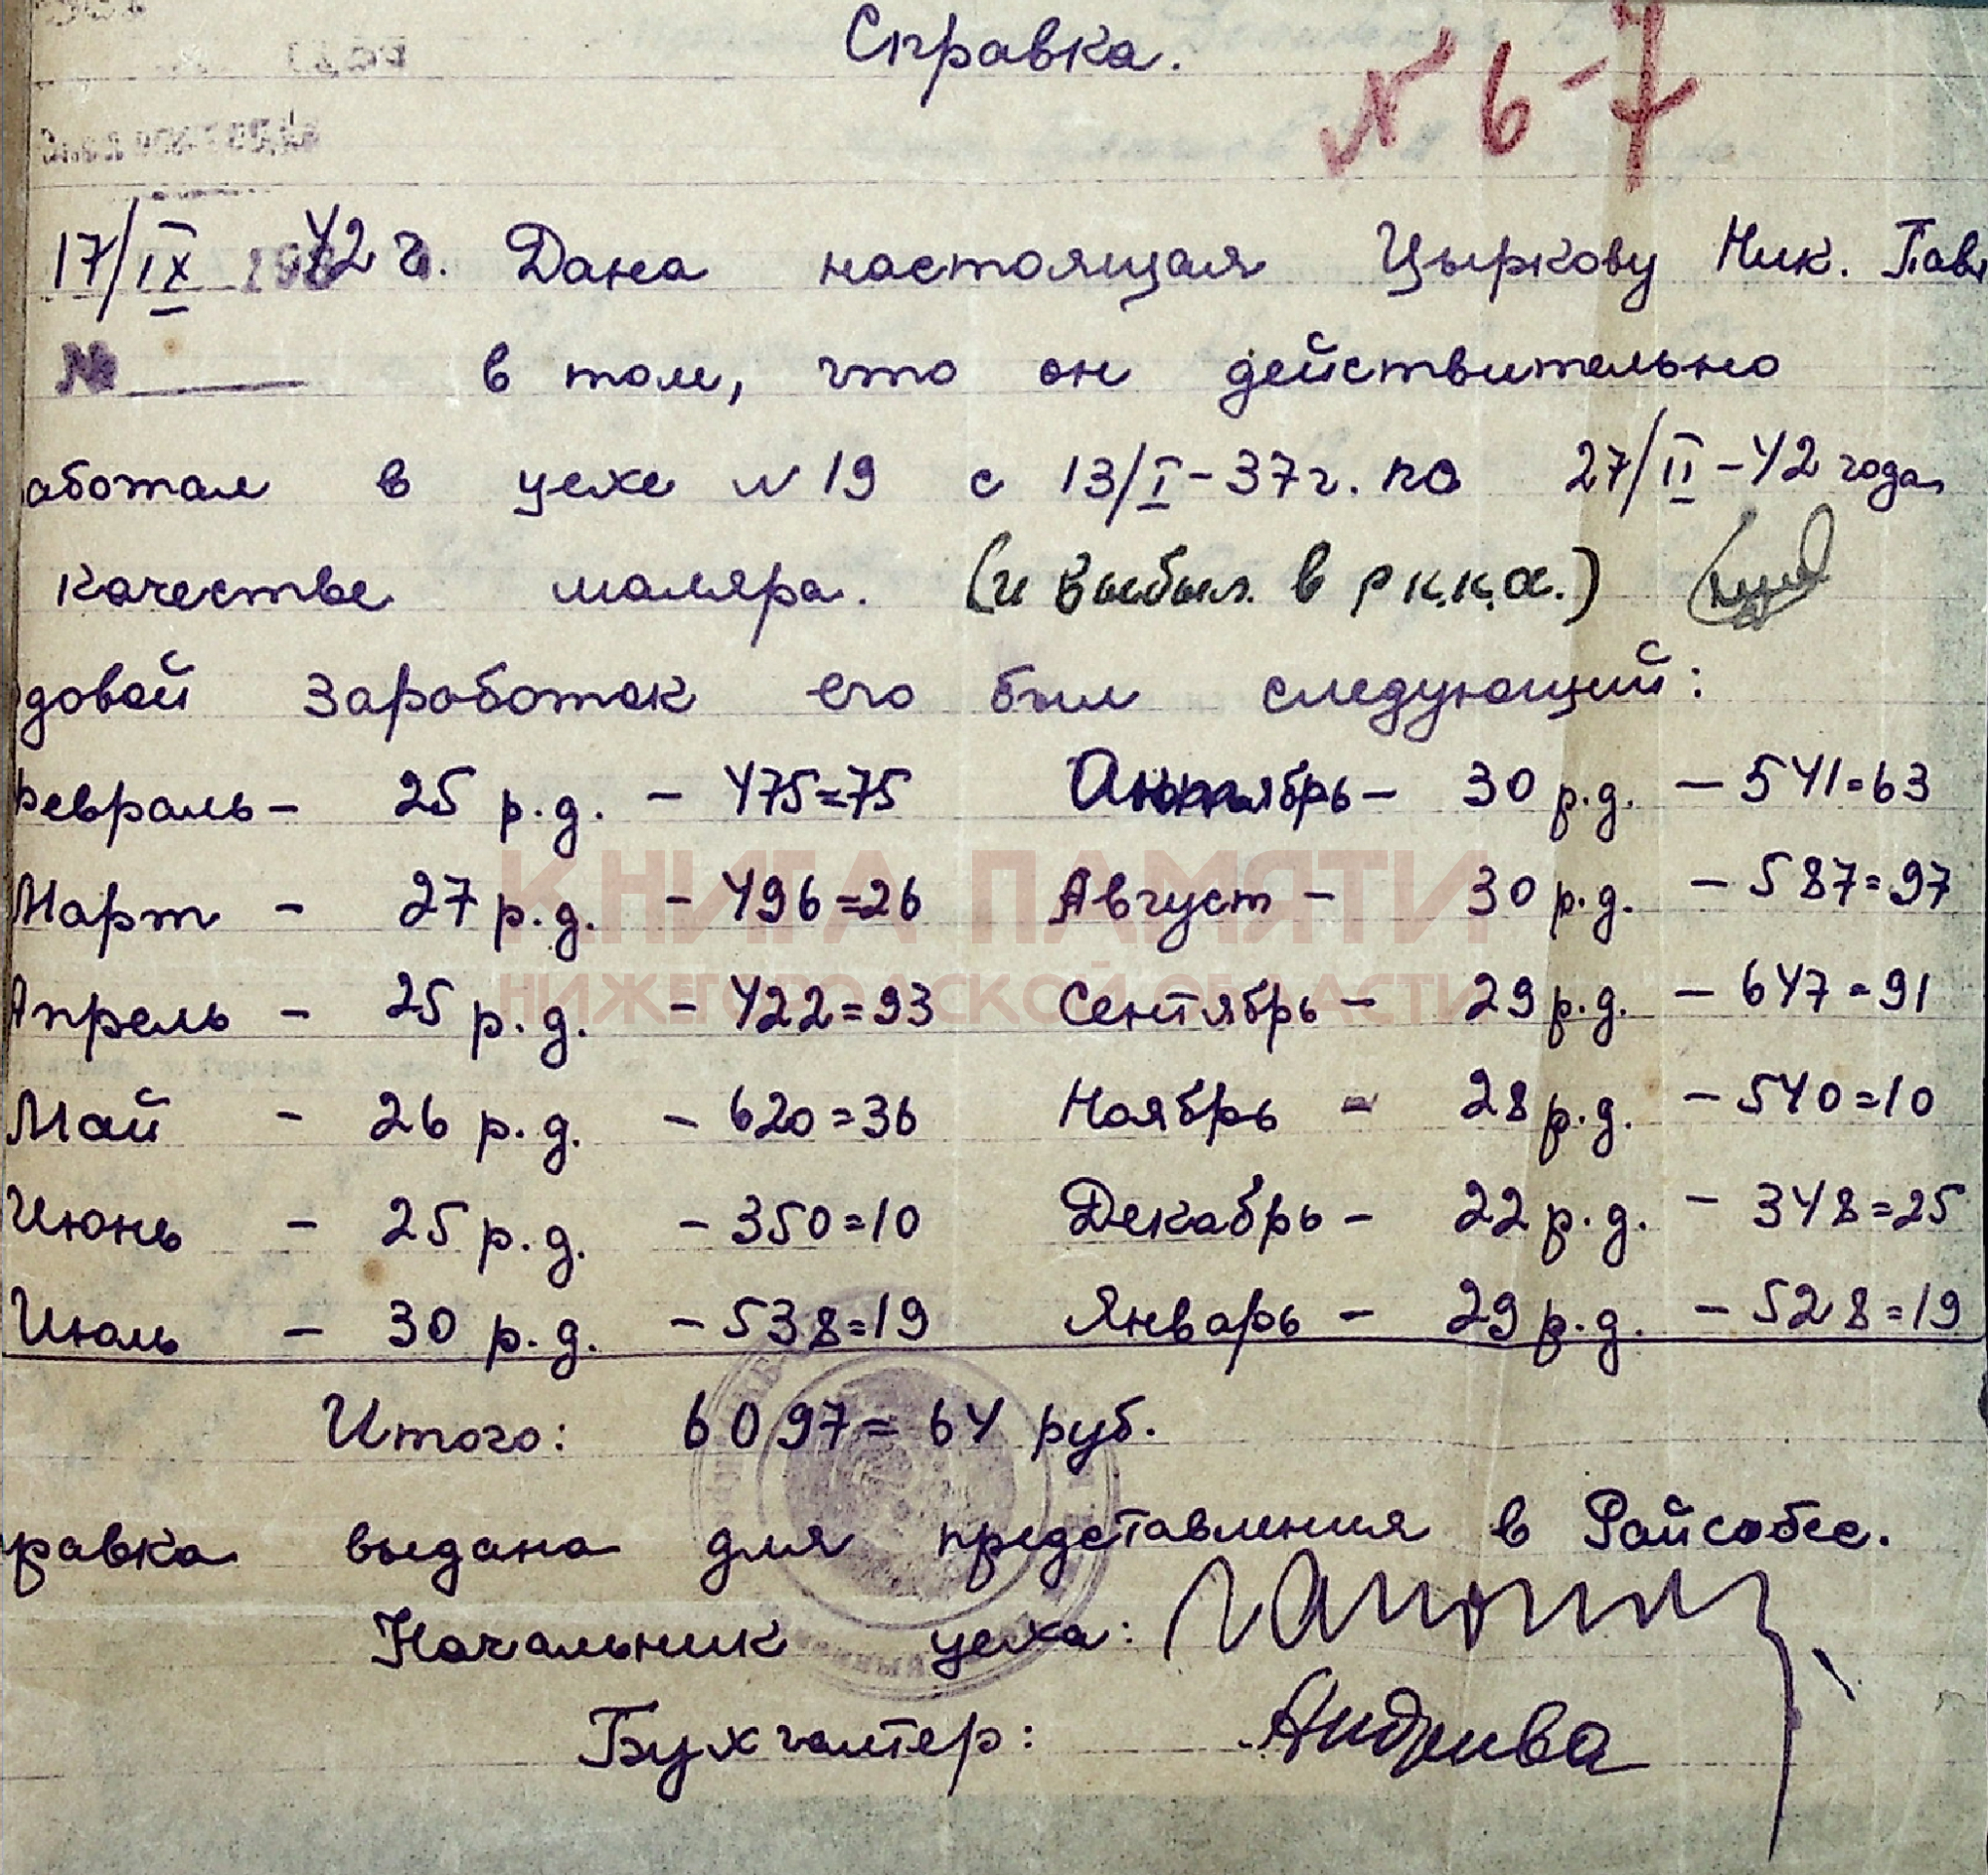 Справка.
№ 6-7
17/IX 1942 г. Дана настоящая Цыркову Ник. Павл
№ в том, что он действительно
аботал в цехе № 19 с 13/I-37г. по 27/II-42 года
качестве маляра. (и выбыл в Р.К.К.А.)
довой заработок его был следующий:
Февраль - 25 р.д. - 475=75 Октябрь - 30 р.д. - 541=63
Март - 27 р.д. - 496=26 Август - 30 р.д. - 587=97
Апрель - 25 р.д. - 422=93 Сентябрь - 29 р.д. - 647=91
Май - 26 р.д. - 620=36 Ноябрь - 28 р.д. - 540=10
Июнь - 25 р.д. - 350=10 Декабрь - 22 р.д. - 348=25
Июль - 30 р.д. - 538=19 Январь - 29 р.д. - 528=19
Итого: 6097=64 руб.
равка выдана для представления в Райсобес.
Начальник цеха:
Бухгалтер: Андреева
КНИГА ПАМЯТИ
НИЖЕГОРОДСКОЙ ОБЛАСТИ